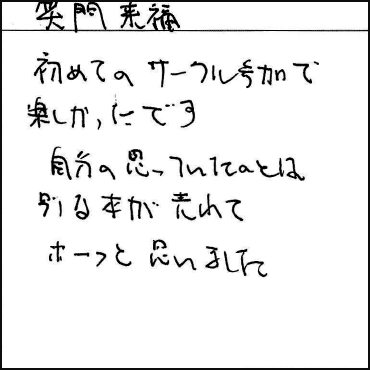 笑門来福
初めてのサークル参加で
楽しかったです
自分の思っていたのとは
別な本が売れて
ホーっと思いました